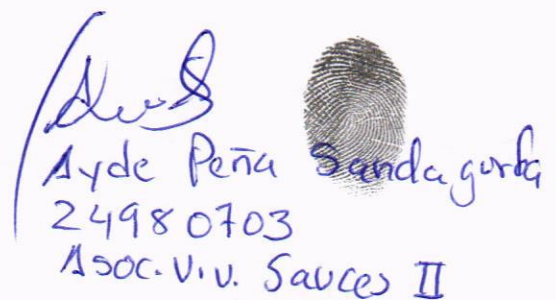 Ayde Peña Sandagorda
24980703
Asoc. Viv. Sauces II